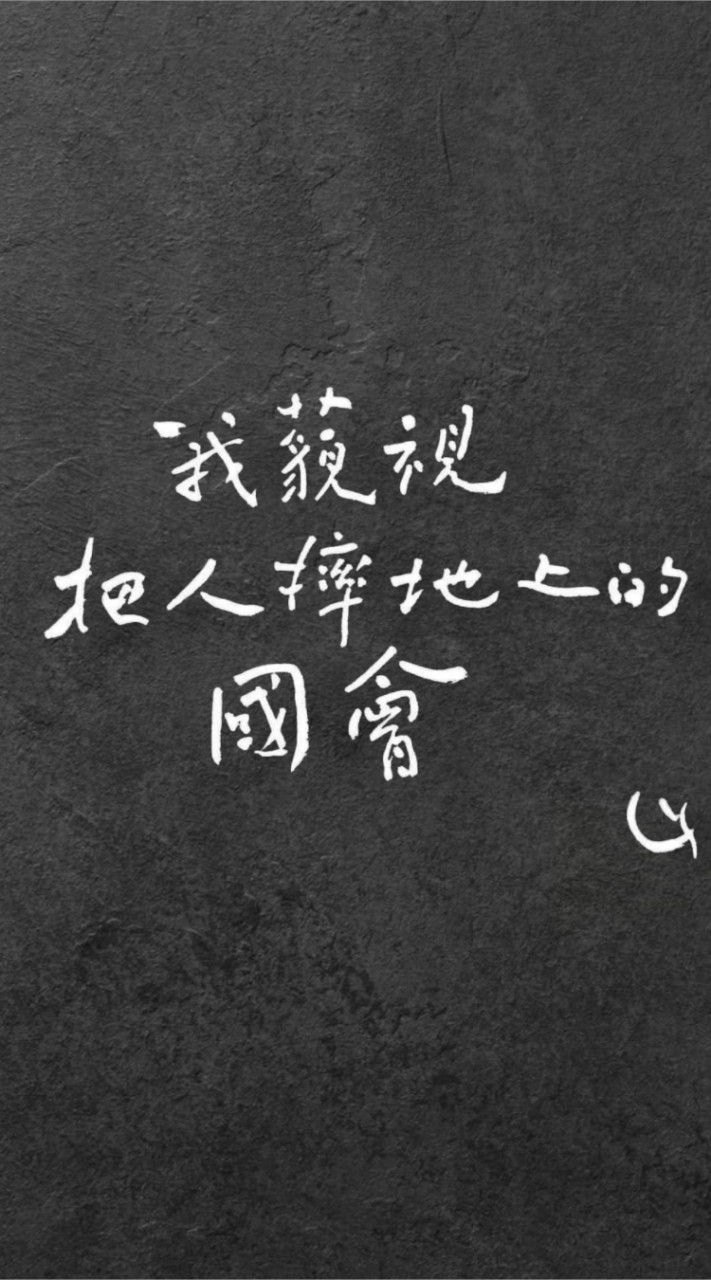 我藐視
把人摔地上的
國會